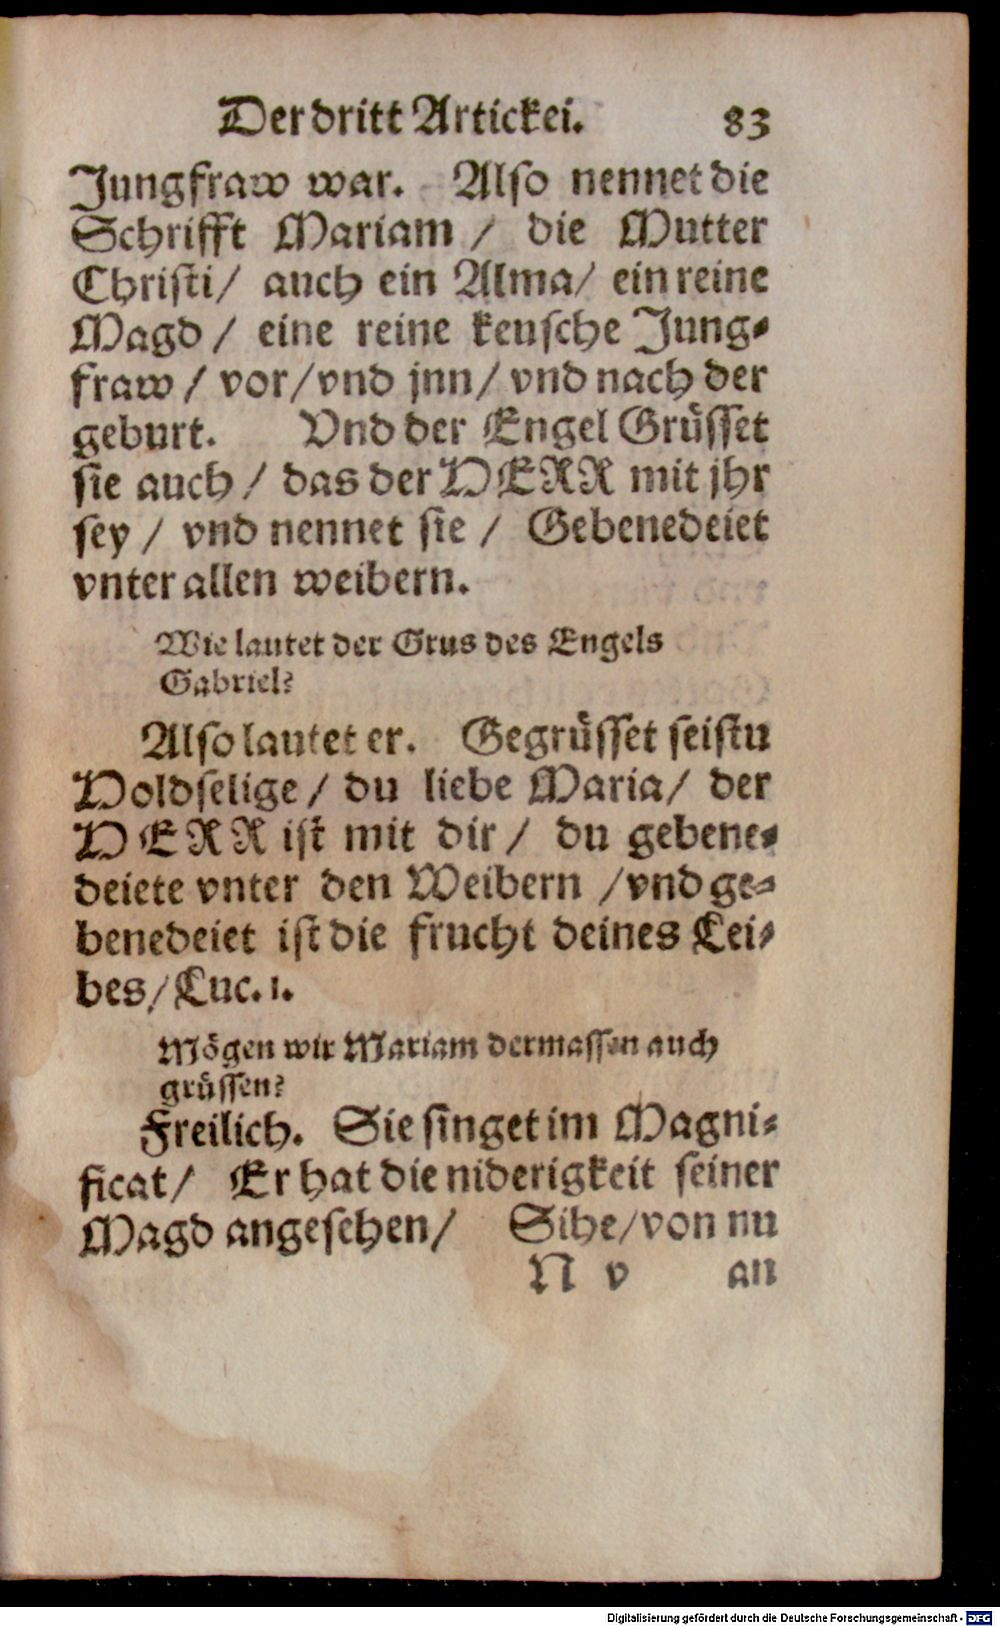 Der dritt Artickei. 83
Jungfraw war. Also nennet die
Schrifft Mariam / die Mutter
Christi / auch ein Alma / ein reine
Magd / eine reine keusche Jung⸗
fraw / vor / vnd jnn / vnd nach der
geburt. Vnd der Engel Grüsset
sie auch / das der HERR mit jhr
sey / vnd nennet sie / Gebenedeiet
vnter allen weibern.
Wie lautet der Grus des Engels
Gabriel?
Also lautet er. Gegrüsset seistu
Holdselige / du liebe Maria / der
HERR ist mit dir / du gebene⸗
deiete vnter den Weibern / vnd ge⸗
benedeiet ist die frucht deines Lei⸗
bes / Luc. 1.
Mögen wir Mariam dermassen auch
grüssen?
Freilich. Sie singet im Magni⸗
ficat / Er hat die niderigkeit seiner
Magd angesehen / Sihe / von nu
N v an
Digitalisierung gefördert durch die Deutsche Forschungsgemeinschaft - DFG